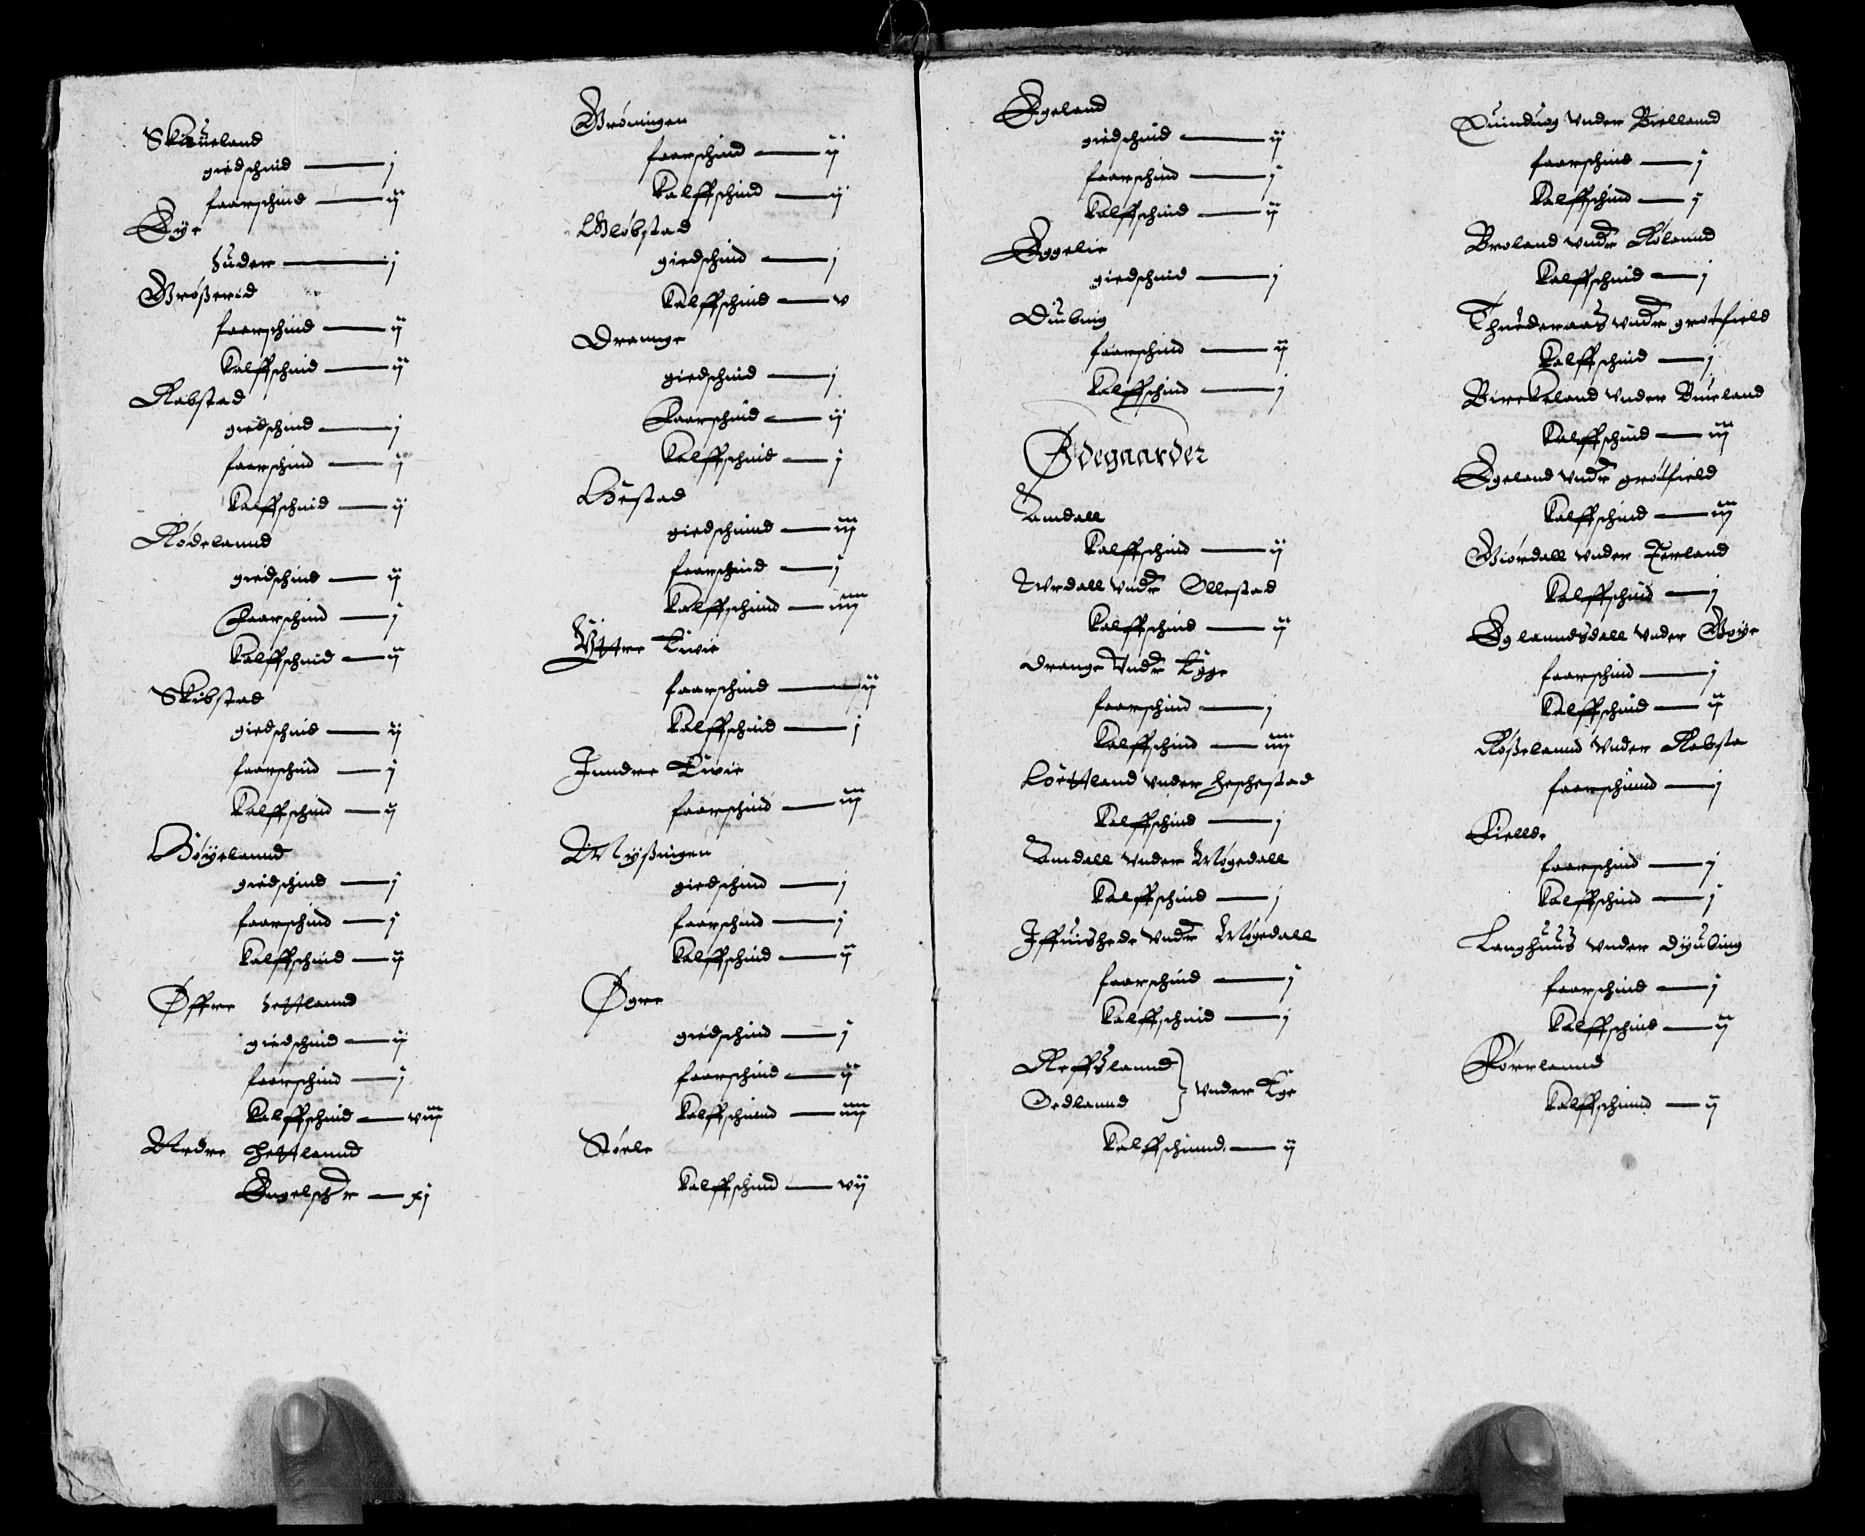 Skiueland
giedschind — j
faarschind — ij
Øye
huder — j
Grøßerid
faarschind — ij
Kalffschind — ij
Rabstad
giedschind — j
faarschind — j
Kalffschind — ij
Rødelannd
giedschind — ij
Faarschind — j
Kalffschind — ij
Skibstad
giedschind — ij
faarschind — j
Kalffschind — ij
Høyelannd
giedschind — j
faarschind — j
Kalffschind — ij
Øffre hettlannd
giedschind — ij
faarschind — j
Kalffschind — viij
Nedre Hettlannd
Engelschr — xj
Grøningen
faarschind — ij
Kalffschind — ij
Gløbstad
giedschind — j
Kalffschind — v
Drannge
giedschind — j
Faarschind — ij
Kalffschind — j
Hestad
giedschinnd — iij
faarschind — j
Kalffschinnd — iiij
Yttre Liwie
faarschind — ij
Kalffschind — j
Inndre Liwie
faarschind — iij
Myßingen
giedschind — j
faarschind — j
Kalffschind — ij
Øgre
giedschind — j
faarschind — ij
Kalffschinnd — iiij
Støele
Kalffschind — vij
Egeland
giedschind — ij
faarschind — j
Kalffschind — ij
Eggelie
giedschind — j
Diubing
faarschind — ij
Kalffschind — j
Ødegaarder
Amdall
Kalffschind — ij
Urdall vndr Ollestad
Kalffschind — ij
Drange Vndr Lyge
faarschind — j
Kalffschind — iiij
Løttland vnder heschestad
Kalffschind — j
Amdall vnder Møgedall
Kalffschind — j
Iffuishede vndr Møgedall
faarschind — j
Kalffschind — j
Reffslannd
Oedlannd } vnder Lyge
Kalffschinnd — ij
Quinduog vnder Biellannd
faarschind — j
Kalffschind — j
Broland vndr Rølannd
Kalffschind — j
Thuederaas vndr grøtfield
Kalffschind — j
Birekeland vnder Bueland
Kalffschind — iij
Egeland vndr grøtfield
Kalffschind — iij
Giørdall vnder Ferland
Kalffschind — j
Eglanndsdall vnder Gyye
faarschind — j
Kalffschind — ij
Røßelannd vnder Rabsta
faarschinnd — j
Fielle
faarschind — j
Kalffschind — j
Langhuus vnder dyubing
faarschind — j
Kalffschind — ij
Førrlannd
Kalffschinnd — ij